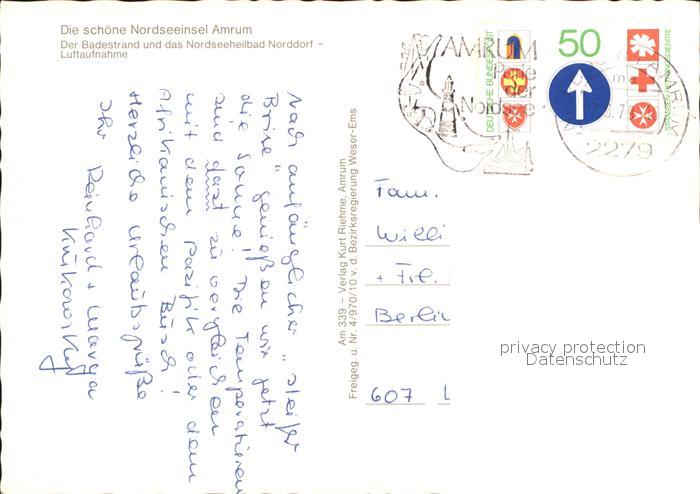 Die schöne Nordseeinsel Amrum
Der Badestrand und das Nordseeheilbad Norddorf –
Luftaufnahme
Nach anfänglicher „steifer
Brise" genießen wir jetzt
die Sonne! Die Temperaturen
sind dann zu vergleichen
mit dem Pazifik oder dem
Afrikanischen Busch!
Herzliche Urlaubsgrüße
Ihr Reinhard + Marga
Am 339 – Verlag Kurt Riehme, Amrum
Freigeg. u. Nr. 4/970/10 v. d. Bezirksregierung Weser-Ems
AMRUM
Perle
der
Nordsee
DEUTSCHE BUNDESPOST
50
2279
Fam.
Willi
+ Frl.
Berlin
607 L
privacy protection
Datenschutz